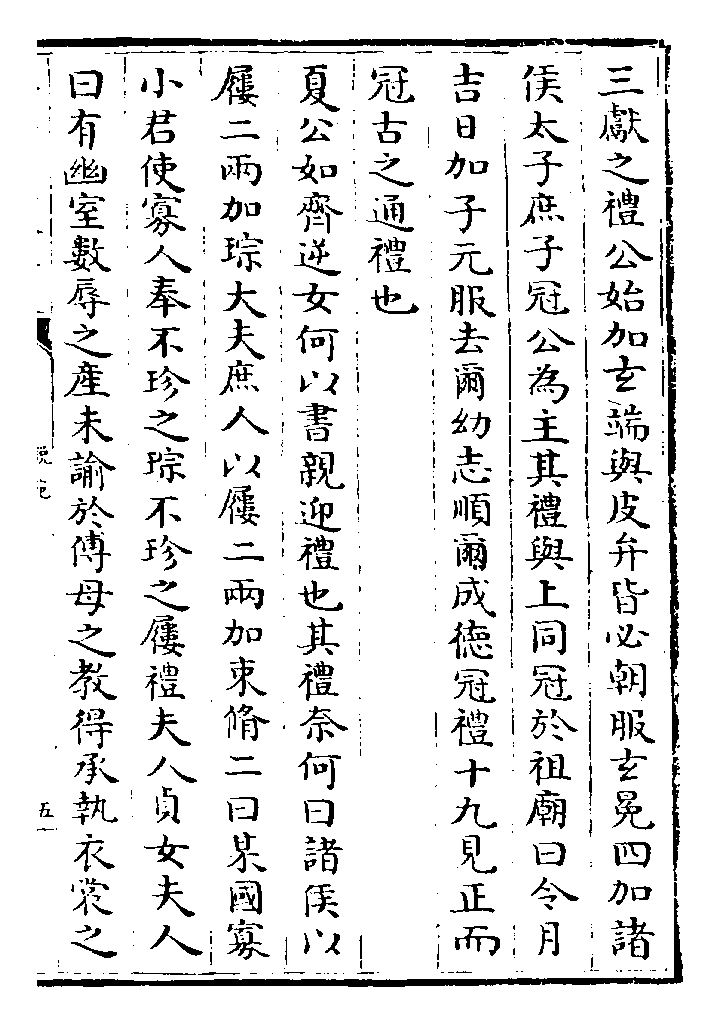 三獻之禮公始加玄端與皮弁皆必朝服玄冕四加諸
侯太子庶子冠公為主其禮與上同冠於祖廟曰令月
吉日加子元服去爾幼志順爾成徳冠禮十九見正而
冠古之通禮也
夏公如齊逆女何以書親迎禮也其禮奈何曰諸侯以
屨二兩加琮大夫庶人以屨二兩加束脩二曰某國寡
小君使寡人奉不珍之琮不珍之屨禮夫人貞女夫人
曰有幽室數辱之産未諭於傅母之教得承執衣裳之
説苑
五